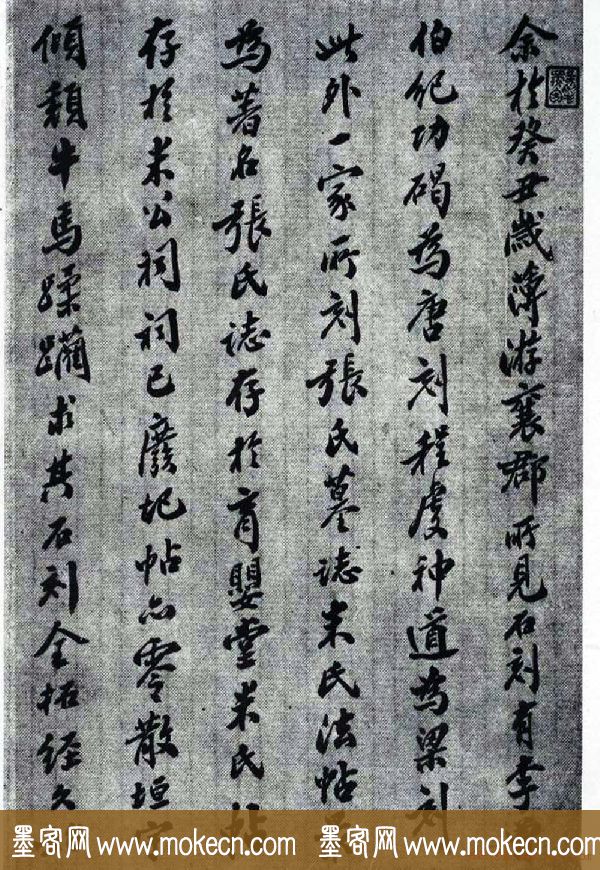 余於癸丑歲薄游襄郡所見石刻有李
伯紀功碣為唐刻程虔神道為梁刻
此外一家所刻張氏墓誌米氏法帖
為著名張氏誌存於育嬰堂米氏帖
存於米公祠祠已廢圮帖亦零散垣宇
傾頹牛馬蹂躪求其石刻全拓經久
墨客网 www.mokecn.com 墨客网 www.mokecn.com